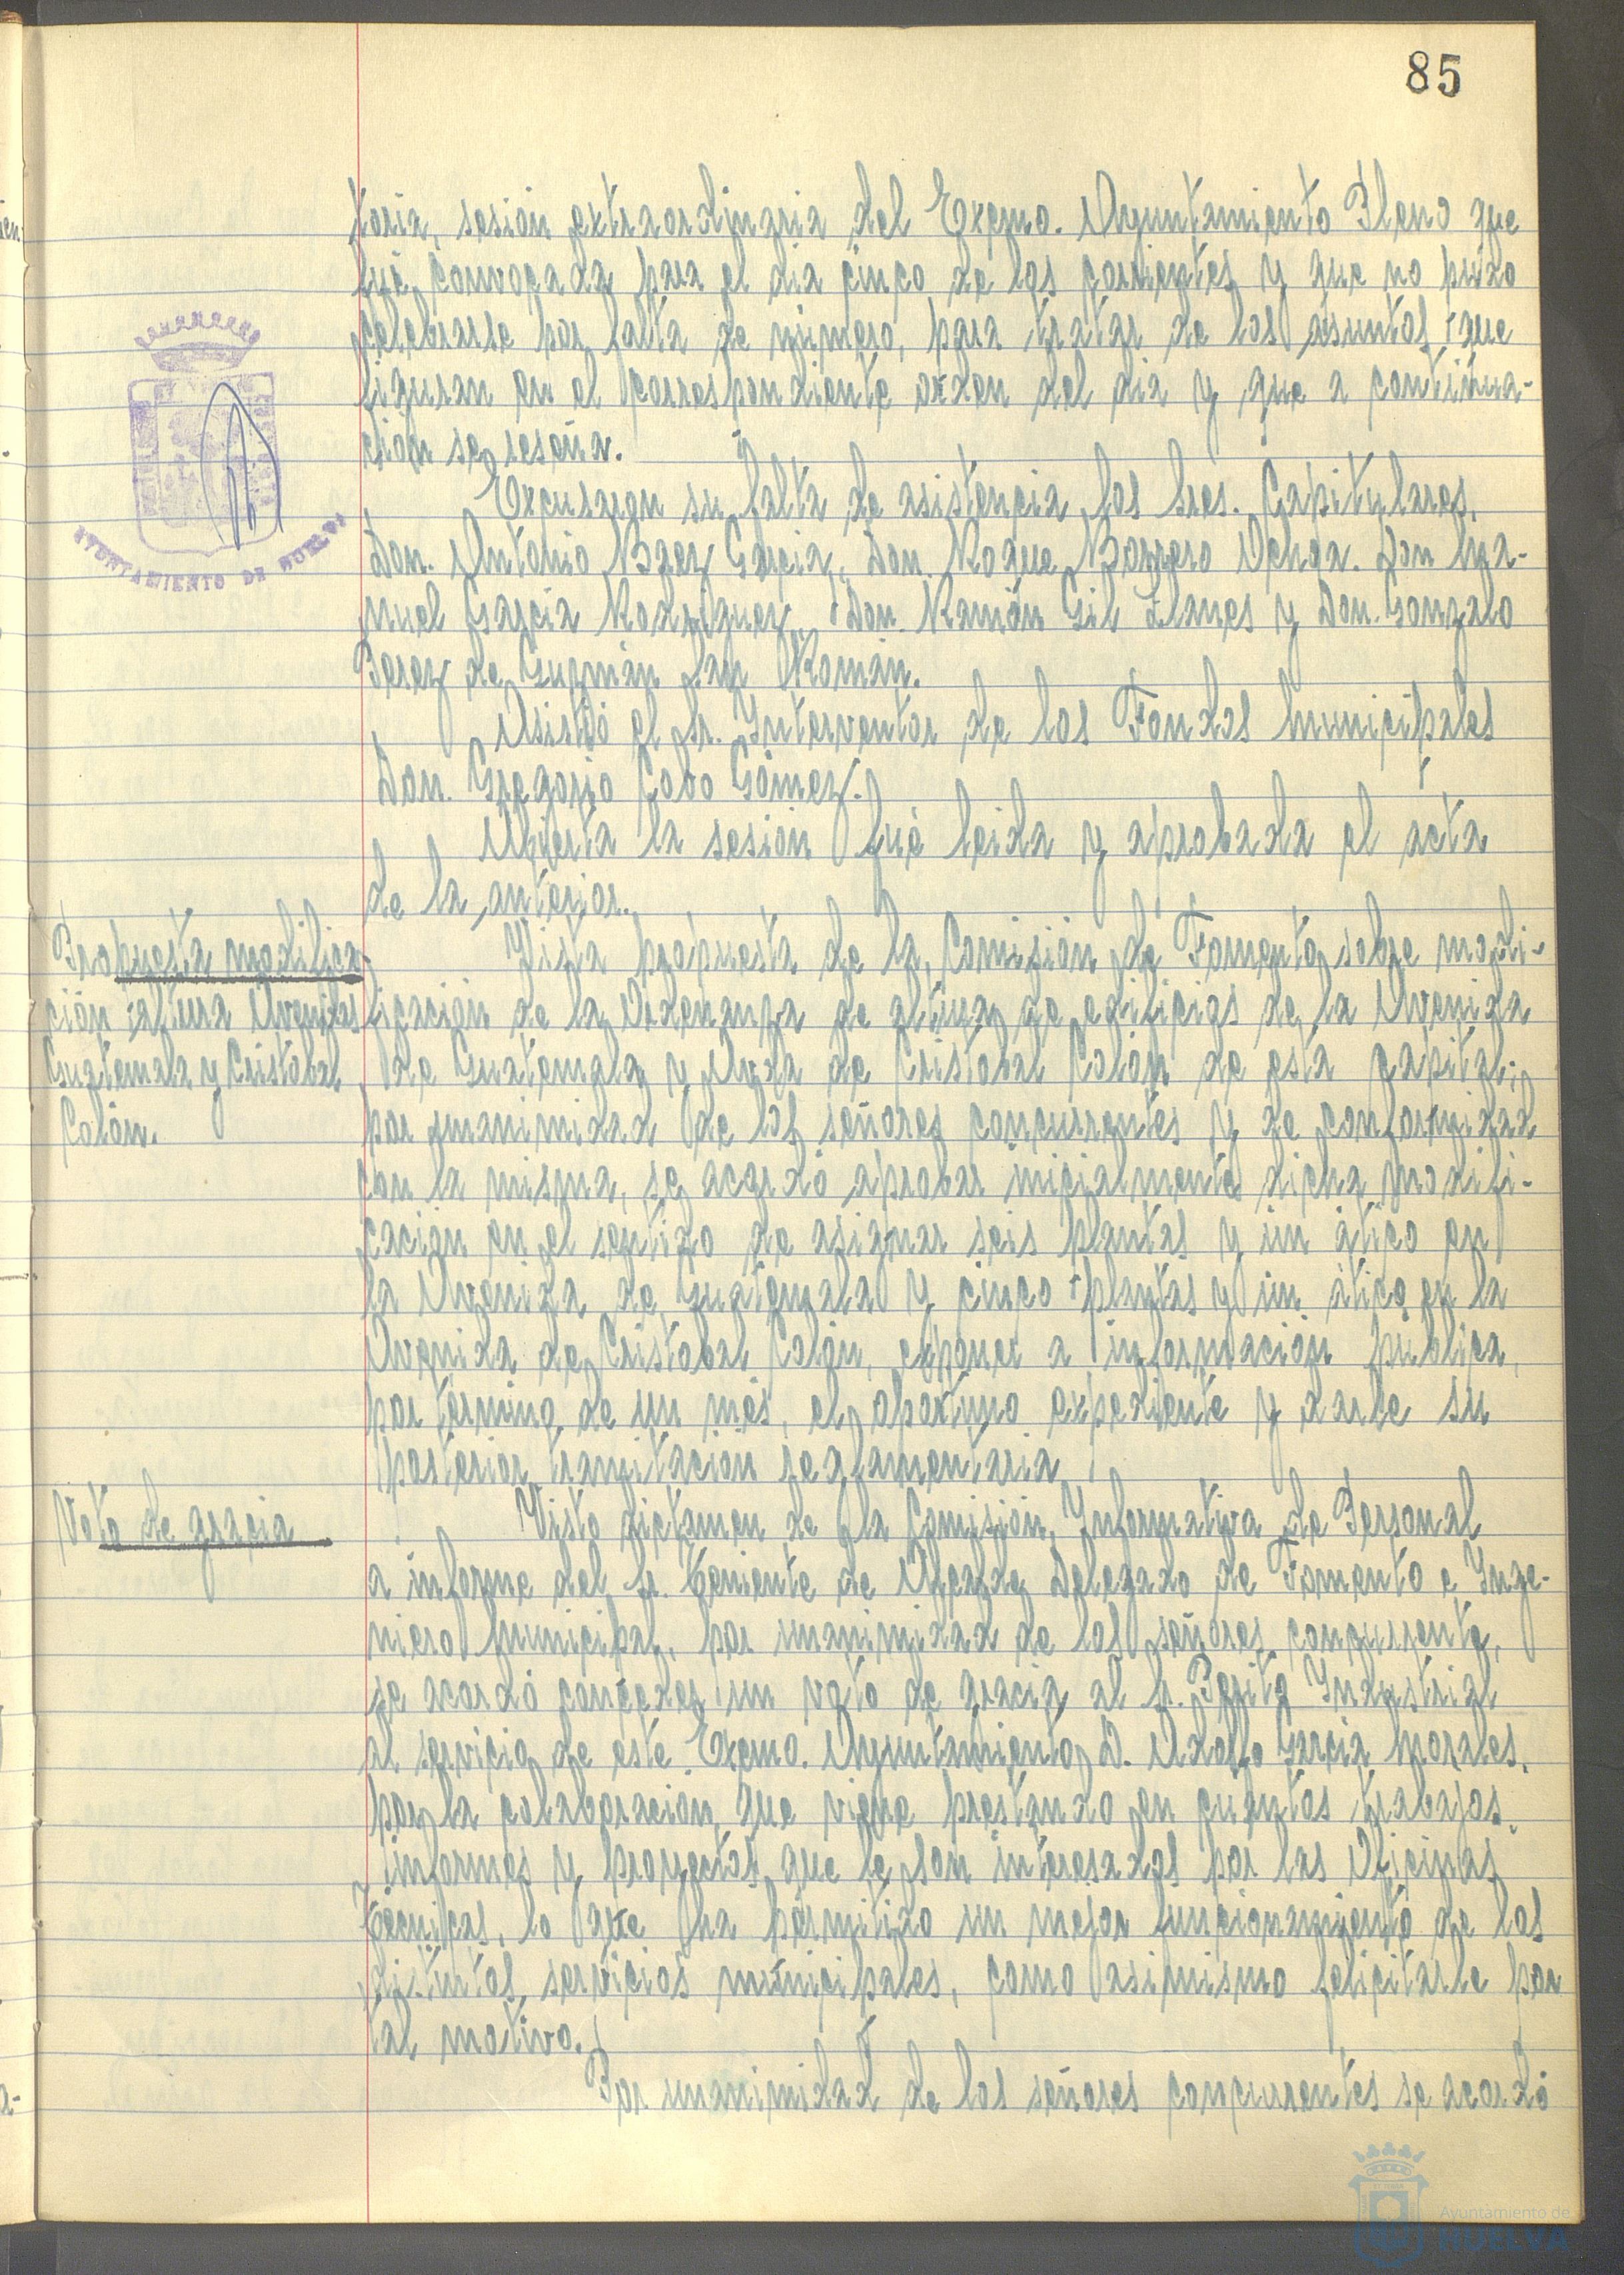 85
toria, sesión extraordinaria del Excmo. Ayuntamiento Pleno que
fué convocada para el día cinco de los corrientes y que no pudo
celebrarse por falta de número, para tratar de los asuntos que
figuran en el correspondiente orden del día y que a continua-
ción se reseña.
Excusaron su falta de asistencia los Sres. Capitulares,
Don. Antonio Baez García, Don. Roque Borrero Ochoa. Don Ma-
nuel García Rodríguez, Don. Ramón Gil Llanes y Don. Gonzalo
Perez de Guzmán San Román.
Asistió el Sr. Interventor de los Fondos Municipales
Don. Gregorio Cobo Gómez.
Abierta la sesión fué leida y aprobada el acta
de la anterior.
Propuesta modifica
ción altura Avenidas
Guatemala y Cristobal
Colón.
Vista propuesta de la Comisión de Fomento sobre modi-
ficación de la Ordenanza de altura de edificios de la Avenida
de Guatemala y Avda de Cristobal Colón de esta capital;
por unanimidad de los señores concurrentes y de conformidad
con la misma, se acordó aprobar inicialmente dicha modifi-
cación en el sentido de asignar seis plantas y un ático en
la Avenida de Guatemala y cinco plantas y un ático en la
Avenida de Cristobal Colón, exponer a información pública,
por término de un mes, el oportuno expediente y darle su
posterior tramitación reglamentaria
Voto de gracia
Visto dictamen de la Comisión Informativa de Personal
a informe del Sr. Teniente de Alcalde Delegado de Fomento e Inge-
niero Municipal, por unanimidad de los señores concurrente,
se acordó conceder un voto de gracia al Sr. Perito Industrial
al servicio de este Excmo. Ayuntamiento D. Adolfo García Morales,
por la colaboración que viene prestando en cuantos trabajos,
informes y proyectos que le son interesados por las Oficinas
Técnicas, lo que ha permitido un mejor funcionamiento de los
distintos servicios municipales, como asimismo felicitarle por
tal motivo.
Por unanimidad de los señores concurrentes se acordó
AYUNTAMIENTO DE HUELVA
Ayuntamiento de
HUELVA